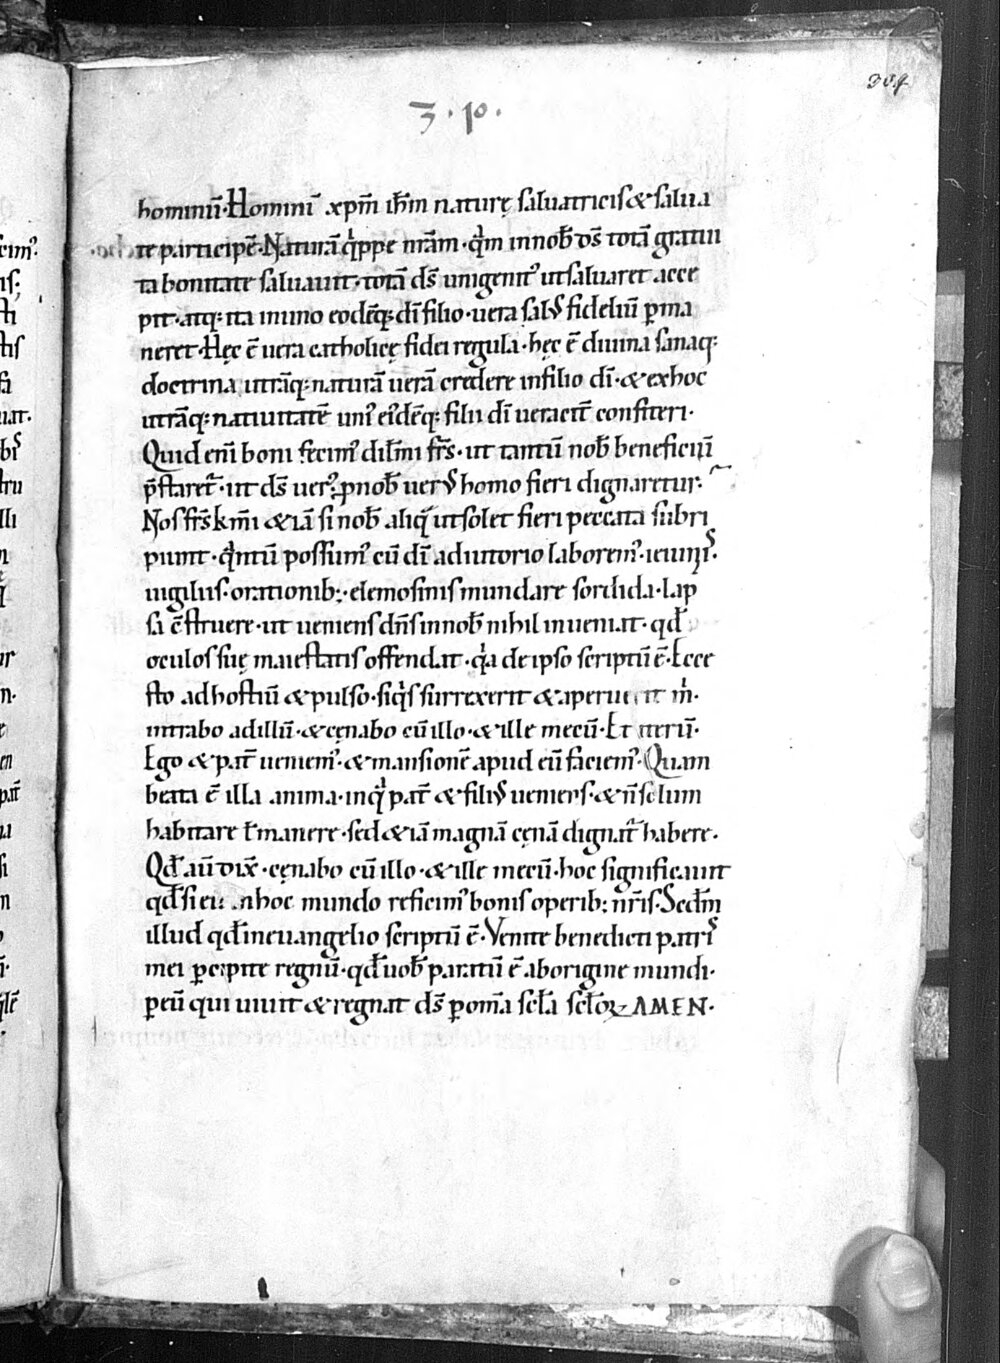 304
3 · p ·
hominū·Hominī xpm̄ ih̄m naturę saluatricis & salua
tę participē·Naturā q̇ppe nr̄am·q̇m in nob̄ d̄s totā gratui
ta bonitate saluauit·totā d̄s unigenitꝰ ut saluaret acce
pit·atq; ita in uno eodēq; dī filio·uera salꝰ fideliū p̄ma
neret·Hęc ē uera catholicę fidei regula·hęc ē diuina sanaq;
doctrina utrāq; naturā uerā credere in filio dī·& ex hoc
utrāq; natiuitatē uniꝰ eiꝰdēq; filii dī ueracit̄ confiteri·
Quid enī boni fecimꝰ dil̄mi fr̄s·ut tantū nob̄ beneficiū
p̄staret̄·ut d̄s uerꝰ p nob̄ uerꝰ homo fieri dignaretur·
Nos fr̄s km̄i & iā si nob̄ aliq̄ ut solet fieri peccata subri
piunt·q̇ntū possumꝰ cū dī adiutorio laboremꝰ·ieiuniꝭ·
uigiliis·orationib;·elemosinis mundare sordida·lap
sa c̄struere·ut ueniens dn̄s in nob̄ nihil inueniat·qd̄
oculos suę maiestatis offendat·q̇a de ipso scriptū ē·Ecce
sto ad hostiū & pulso·siq̇s surrexerit & aperuerit ṁ·
intrabo ad illū·& cęnabo cū illo·& ille mecū·Et iterū·
Ego & pat̄ ueniemꝰ·& mansionē apud eū faciemꝰ·Quam
beata ē illa anima·in q̇ pat̄ & filiꝰ ueniens·& n̄ solum
habitare ł manere·sed & iā magnā cęnā dignat̄ habere·
Qd̄ aū dix̄·cęnabo cū illo·& ille mecū·hoc significauit
qd̄ si eū in hoc mundo reficimꝰ bonis operib; nr̄is·Scdm̄
illud qd̄ in euangelio scriptū ē·Venite benedicti patrꝭ
mei p̄cipite regnū·qd̄ uob̄ paratū ē ab origine mundi·
p eū qui uiuit & regnat d̄s p om̄a scl̄a scl̄oꝝ AMEN·